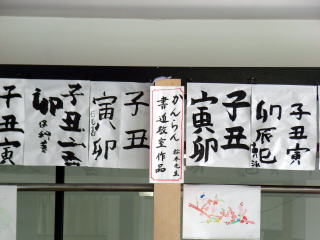 子丑寅
卯辰巳
子丑
寅卯
かんらん
書道教室作品
松本先生
子丑
寅卯
子丑寅
卯
子丑寅